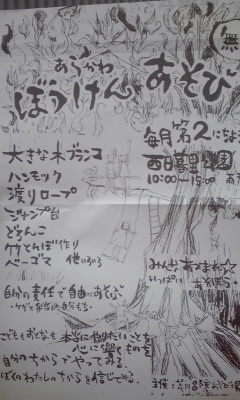 無
あらかわ
ぼうけんあそび
毎月第2にちよう
西日暮里公園
10:00~15:00
大きな木ブランコ
ハンモック
渡りロープ
ジャンプ台
どろんこ
竹とんぼ作り
ベーゴマ 他いろいろ
みんなあつまれ☆
いっぱい
あそぼう
自分の責任で自由にあそぶ
こどももおとなも本当にやりたいことを
心に響くものを
自分のちからでやってみる
ぼくのわたしのちからを信じてみる
主催